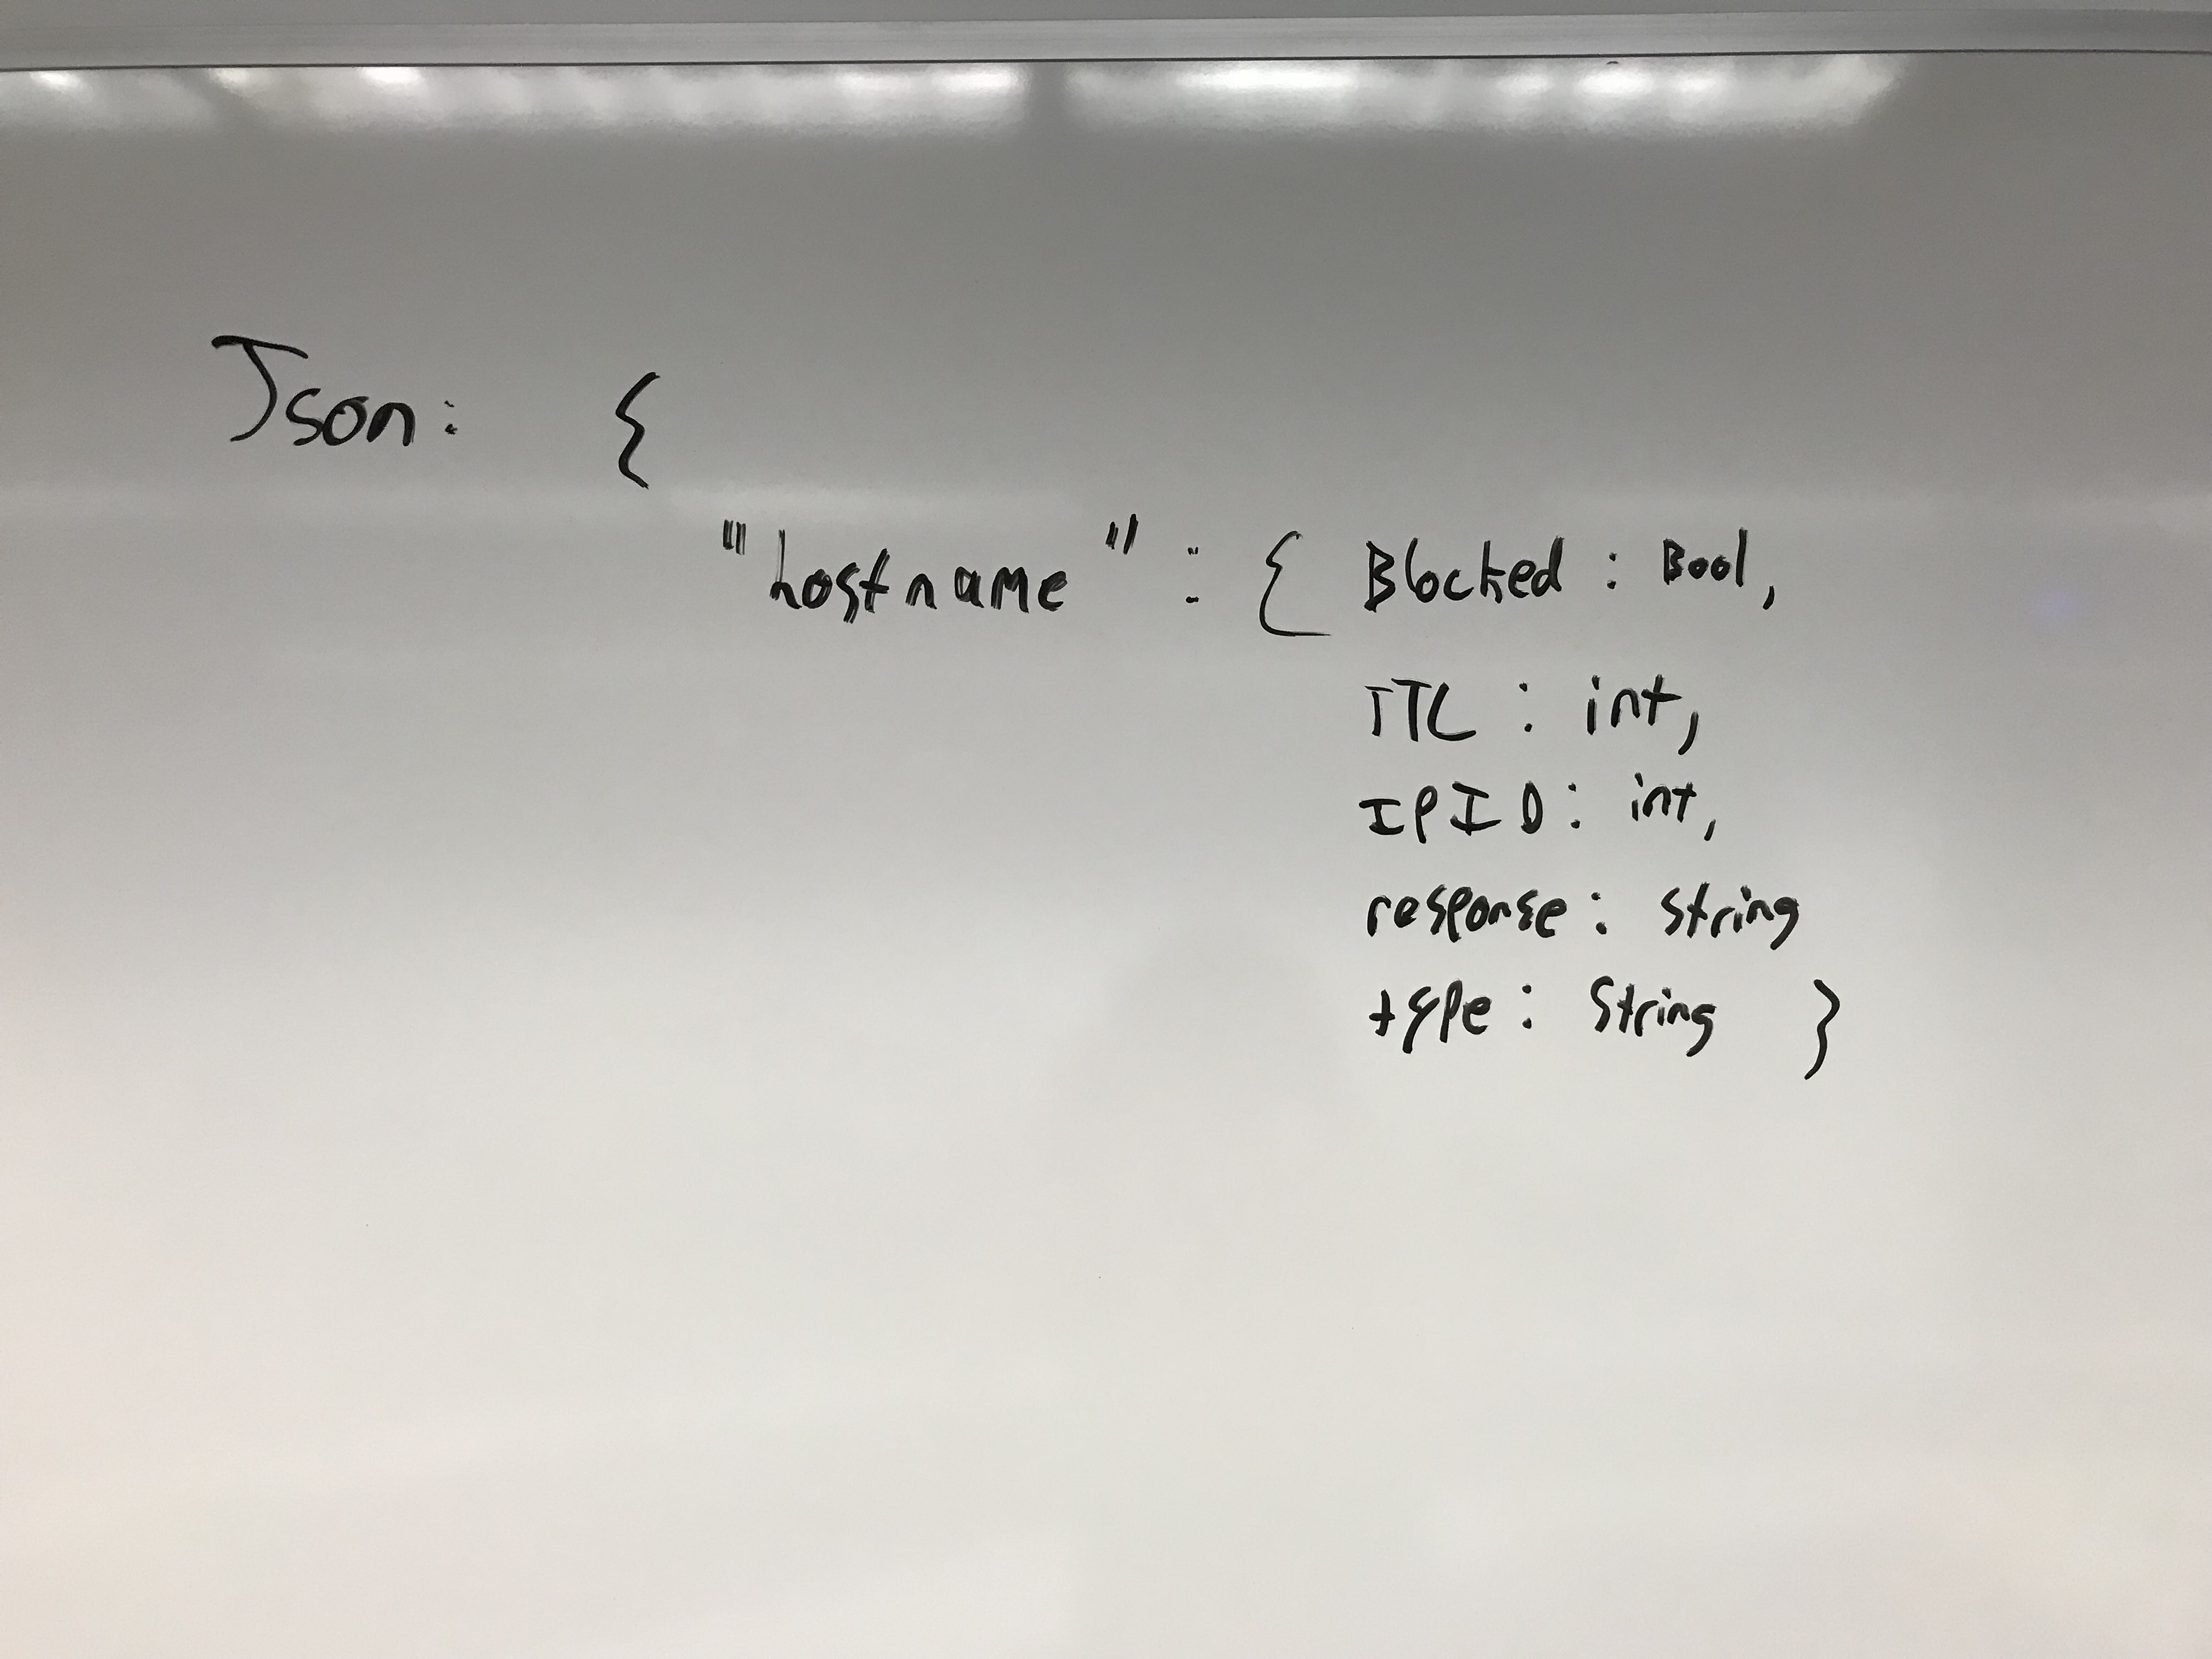 Json: {
"hostname" : { Blocked : Bool,
TTL : int,
IPID : int,
response : string
type : String }